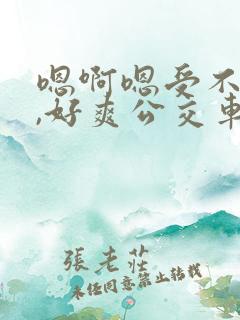 嗯啊嗯受不
,好爽公交车
張老莊
未经同意禁止转载